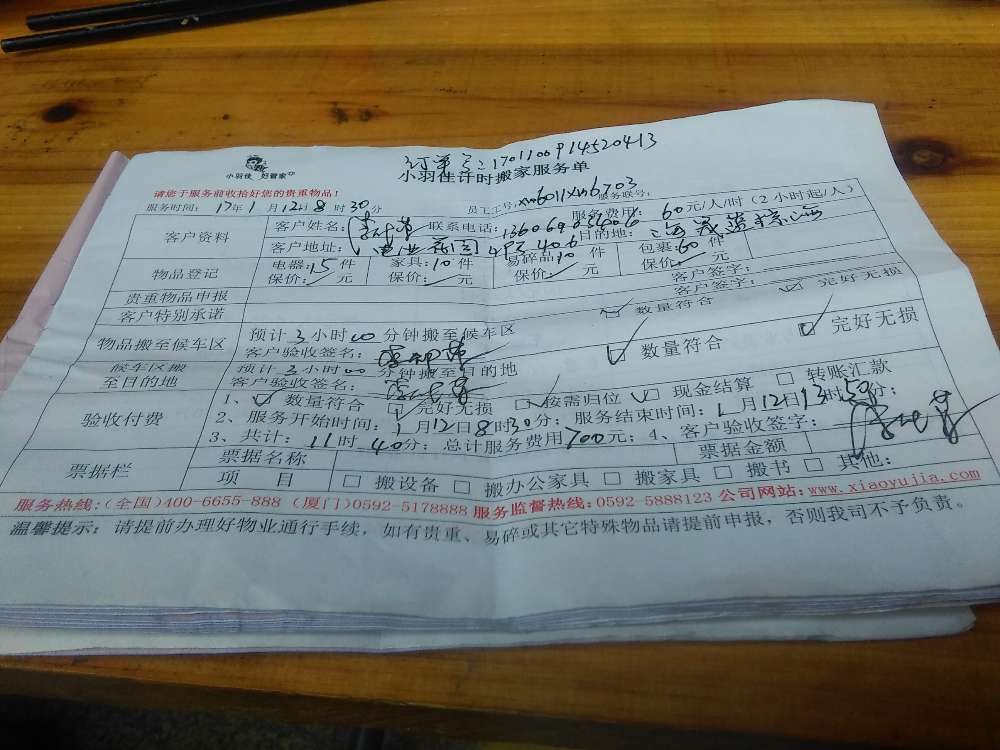 订单号：170110091452 0413
小羽佳 好管家
小羽佳计时搬家服务单
请您于服务前收拾好您的贵重物品！
服务时间：17年1月12日8时30分 员工工号：xm6011xm6703 服务联号：
客户资料 客户姓名： 联系电话： 服务费用：60元/人/时（2小时起/人）
客户地址： 目的地：
物品登记 电器：15件 家具：10件 易碎品：10件 包裹：60件
保价：/元 保价：/元 保价：/元 保价：/元
贵重物品申报 客户签字：
客户特别承诺 客户签字： 数量符合 完好无损
物品搬至候车区 预计3小时00分钟搬至候车区
客户验收签名： 数量符合 完好无损
候车区搬至目的地 预计3小时00分钟搬至目的地
客户验收签名：
验收付费 1、数量符合 完好无损 按需归位 现金结算 转账汇款
2、服务开始时间：1月12日8时30分；服务结束时间：1月12日13时50分；
3、共计：11时40分；总计服务费用700元；4、客户验收签字：
票据栏 票据名称 票据金额
项目 搬设备 搬办公家具 搬家具 搬书 其他：
服务热线：(全国)400-6655-888 (厦门)0592-5178888 服务监督热线：0592-5888123 公司网站：www.xiaoyujia.com
温馨提示：请提前办理好物业通行手续，如有贵重、易碎或其它特殊物品请提前申报，否则我司不予负责。